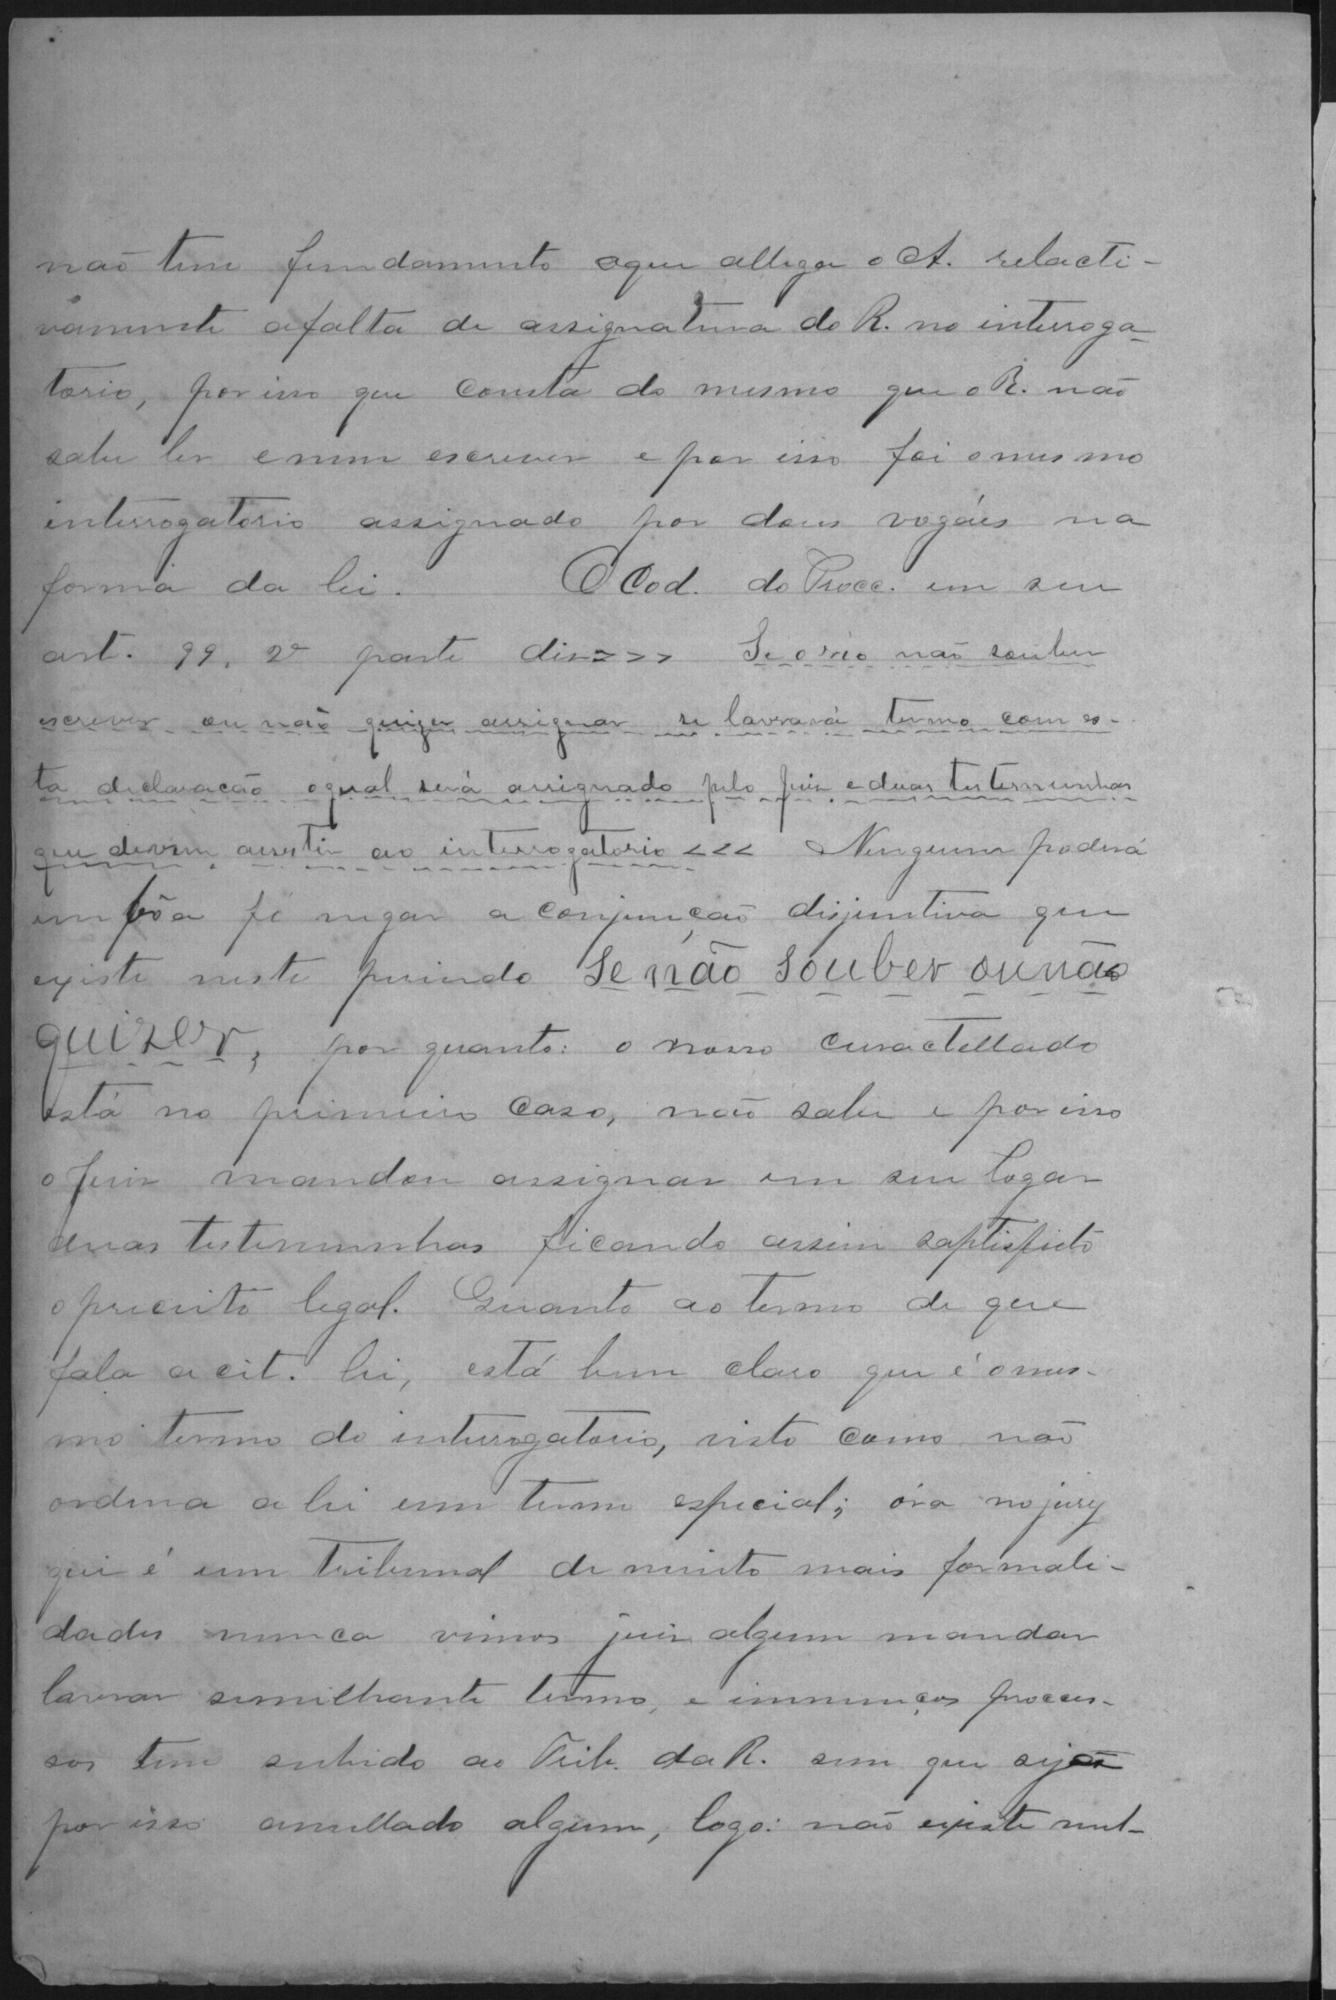 não tem fundamento oque allega o A. relacti-
vamente afalta de assignatura do R. no interroga-
torio, porisso que consta do mesmo que o R. não
sabe ler enem escrever e por isso foi omesmo
interrogatorio assignado por dous vogáes na
forma da lei. O Cod. do Procc. em seu
art. 99, 2ª parte diz=>> Se o réo não souber
escrever ou não quizer assignar se lavrará termo com es-
ta declaração oqual será assignado pelo juiz eduas testemunhas
que devem assistir ao interrogatorio <<< Ninguem poderá
em bôa fé negar a conjuncção disjuntiva que
existe neste periodo Se não souber ou não
quizer, por quanto: o nosso curactellado
está no primeiro caso, não sabe e por isso
o juiz mandou assignar em seu logar
duas testemunhas ficando assim saptisfeito
o preceito legal. Quanto ao termo de que
fala a cit. lei, está bem claro que é omes-
mo termo do interrogatorio, visto como não
ordena a lei um termo especial; óra no jury
que é um tribunal de muito mais formali-
dades nunca vimos juiz algum mandar
lavrar similhante termo, e immenços proces-
sos tem subido ao Trib. da R. sem que seja
por isso anullado algum, logo: não existe nul-